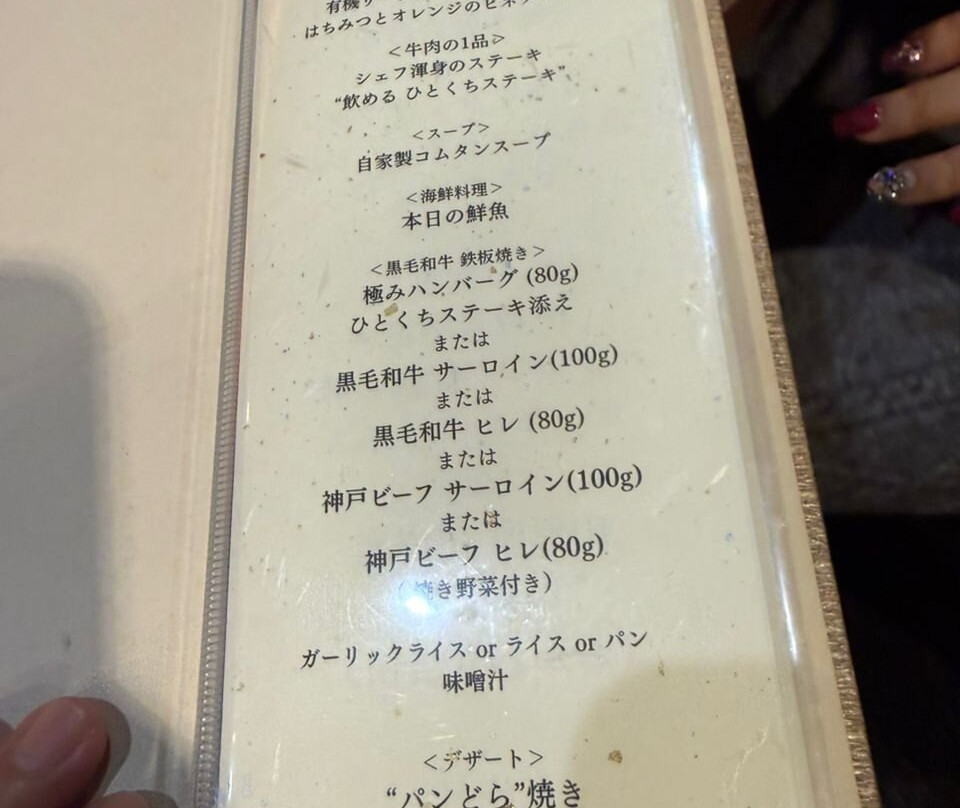 有機サ
はちみつとオレンジのビネ
<牛肉の1品>
シェフ渾身のステーキ
“飲める ひとくちステーキ”
<スープ>
自家製コムタンスープ
<海鮮料理>
本日の鮮魚
<黒毛和牛 鉄板焼き>
極みハンバーグ (80g)
ひとくちステーキ添え
または
黒毛和牛 サーロイン(100g)
または
黒毛和牛 ヒレ (80g)
または
神戸ビーフ サーロイン(100g)
または
神戸ビーフ ヒレ(80g)
(焼き野菜付き)
ガーリックライス or ライス or パン
味噌汁
<デザート>
“パンどら”焼き